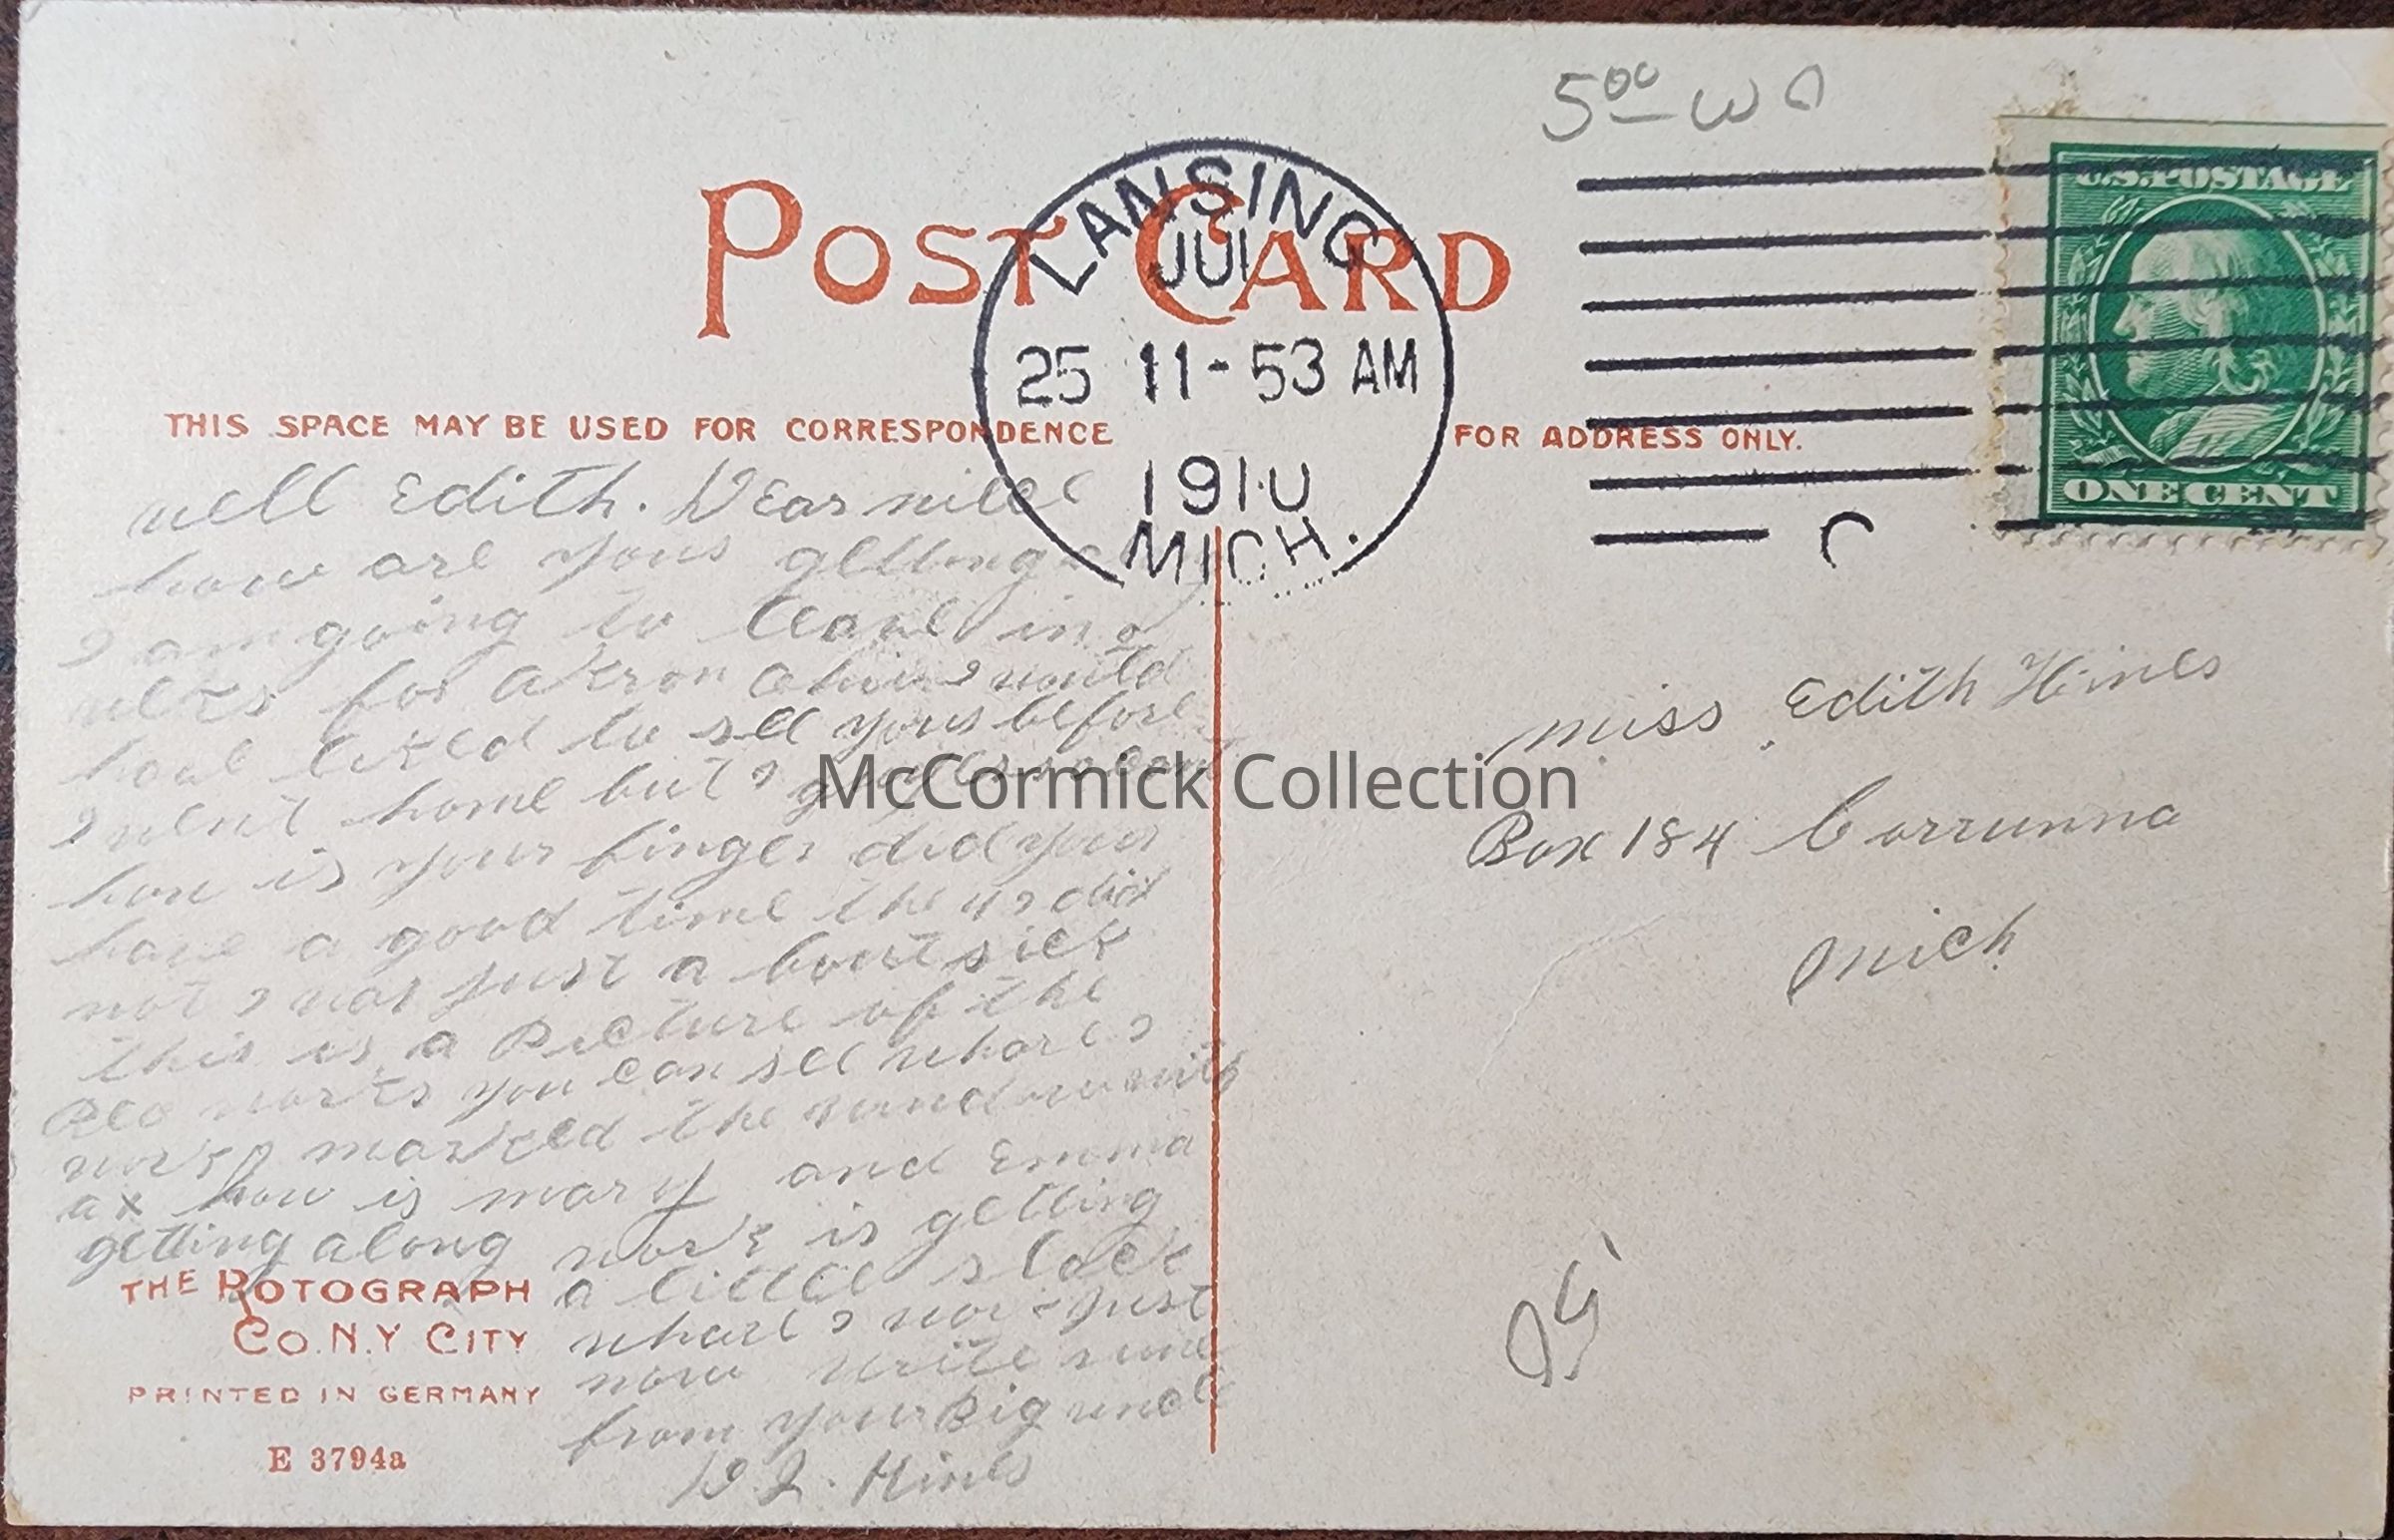 5⁰⁰ W
POST CARD
LANSING
JUL
25 11-53 AM
1910
MICH.
U.S. POSTAGE
ONE CENT
THIS SPACE MAY BE USED FOR CORRESPONDENCE
FOR ADDRESS ONLY.
well Edith. Dear niece
how are yous getting
I am going to leave in a
for Akron Ohio I would
have liked to see yous before
I went home but I
how is your finger did yous
have a good time the 4 I did
not I was just a bout sick
this is a Picture of the
Reo works you can see whare I
work marked the
a x how is mary and Emma
getting along work is getting
a little slack
whare I work just
now write
from your Big uncle
Hines
miss Edith Hines
Box 184 Corrunna
Mich
McCormick Collection
THE ROTOGRAPH
CO. N.Y CITY
PRINTED IN GERMANY
E 3794a